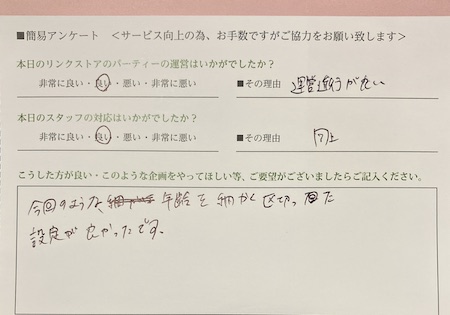 ■簡易アンケート <サービス向上の為、お手数ですがご協力をお願い致します>
本日のリンクストアのパーティーの運営はいかがでしたか?
非常に良い・良い・悪い・非常に悪い ■その理由 運営進行が良い
本日のスタッフの対応はいかがでしたか?
非常に良い・良い・悪い・非常に悪い ■その理由 同上
こうした方が良い・このような企画をやってほしい等、ご要望がございましたらご記入ください。
今回のような、年齢を細かく区切った
設定が良かったです。